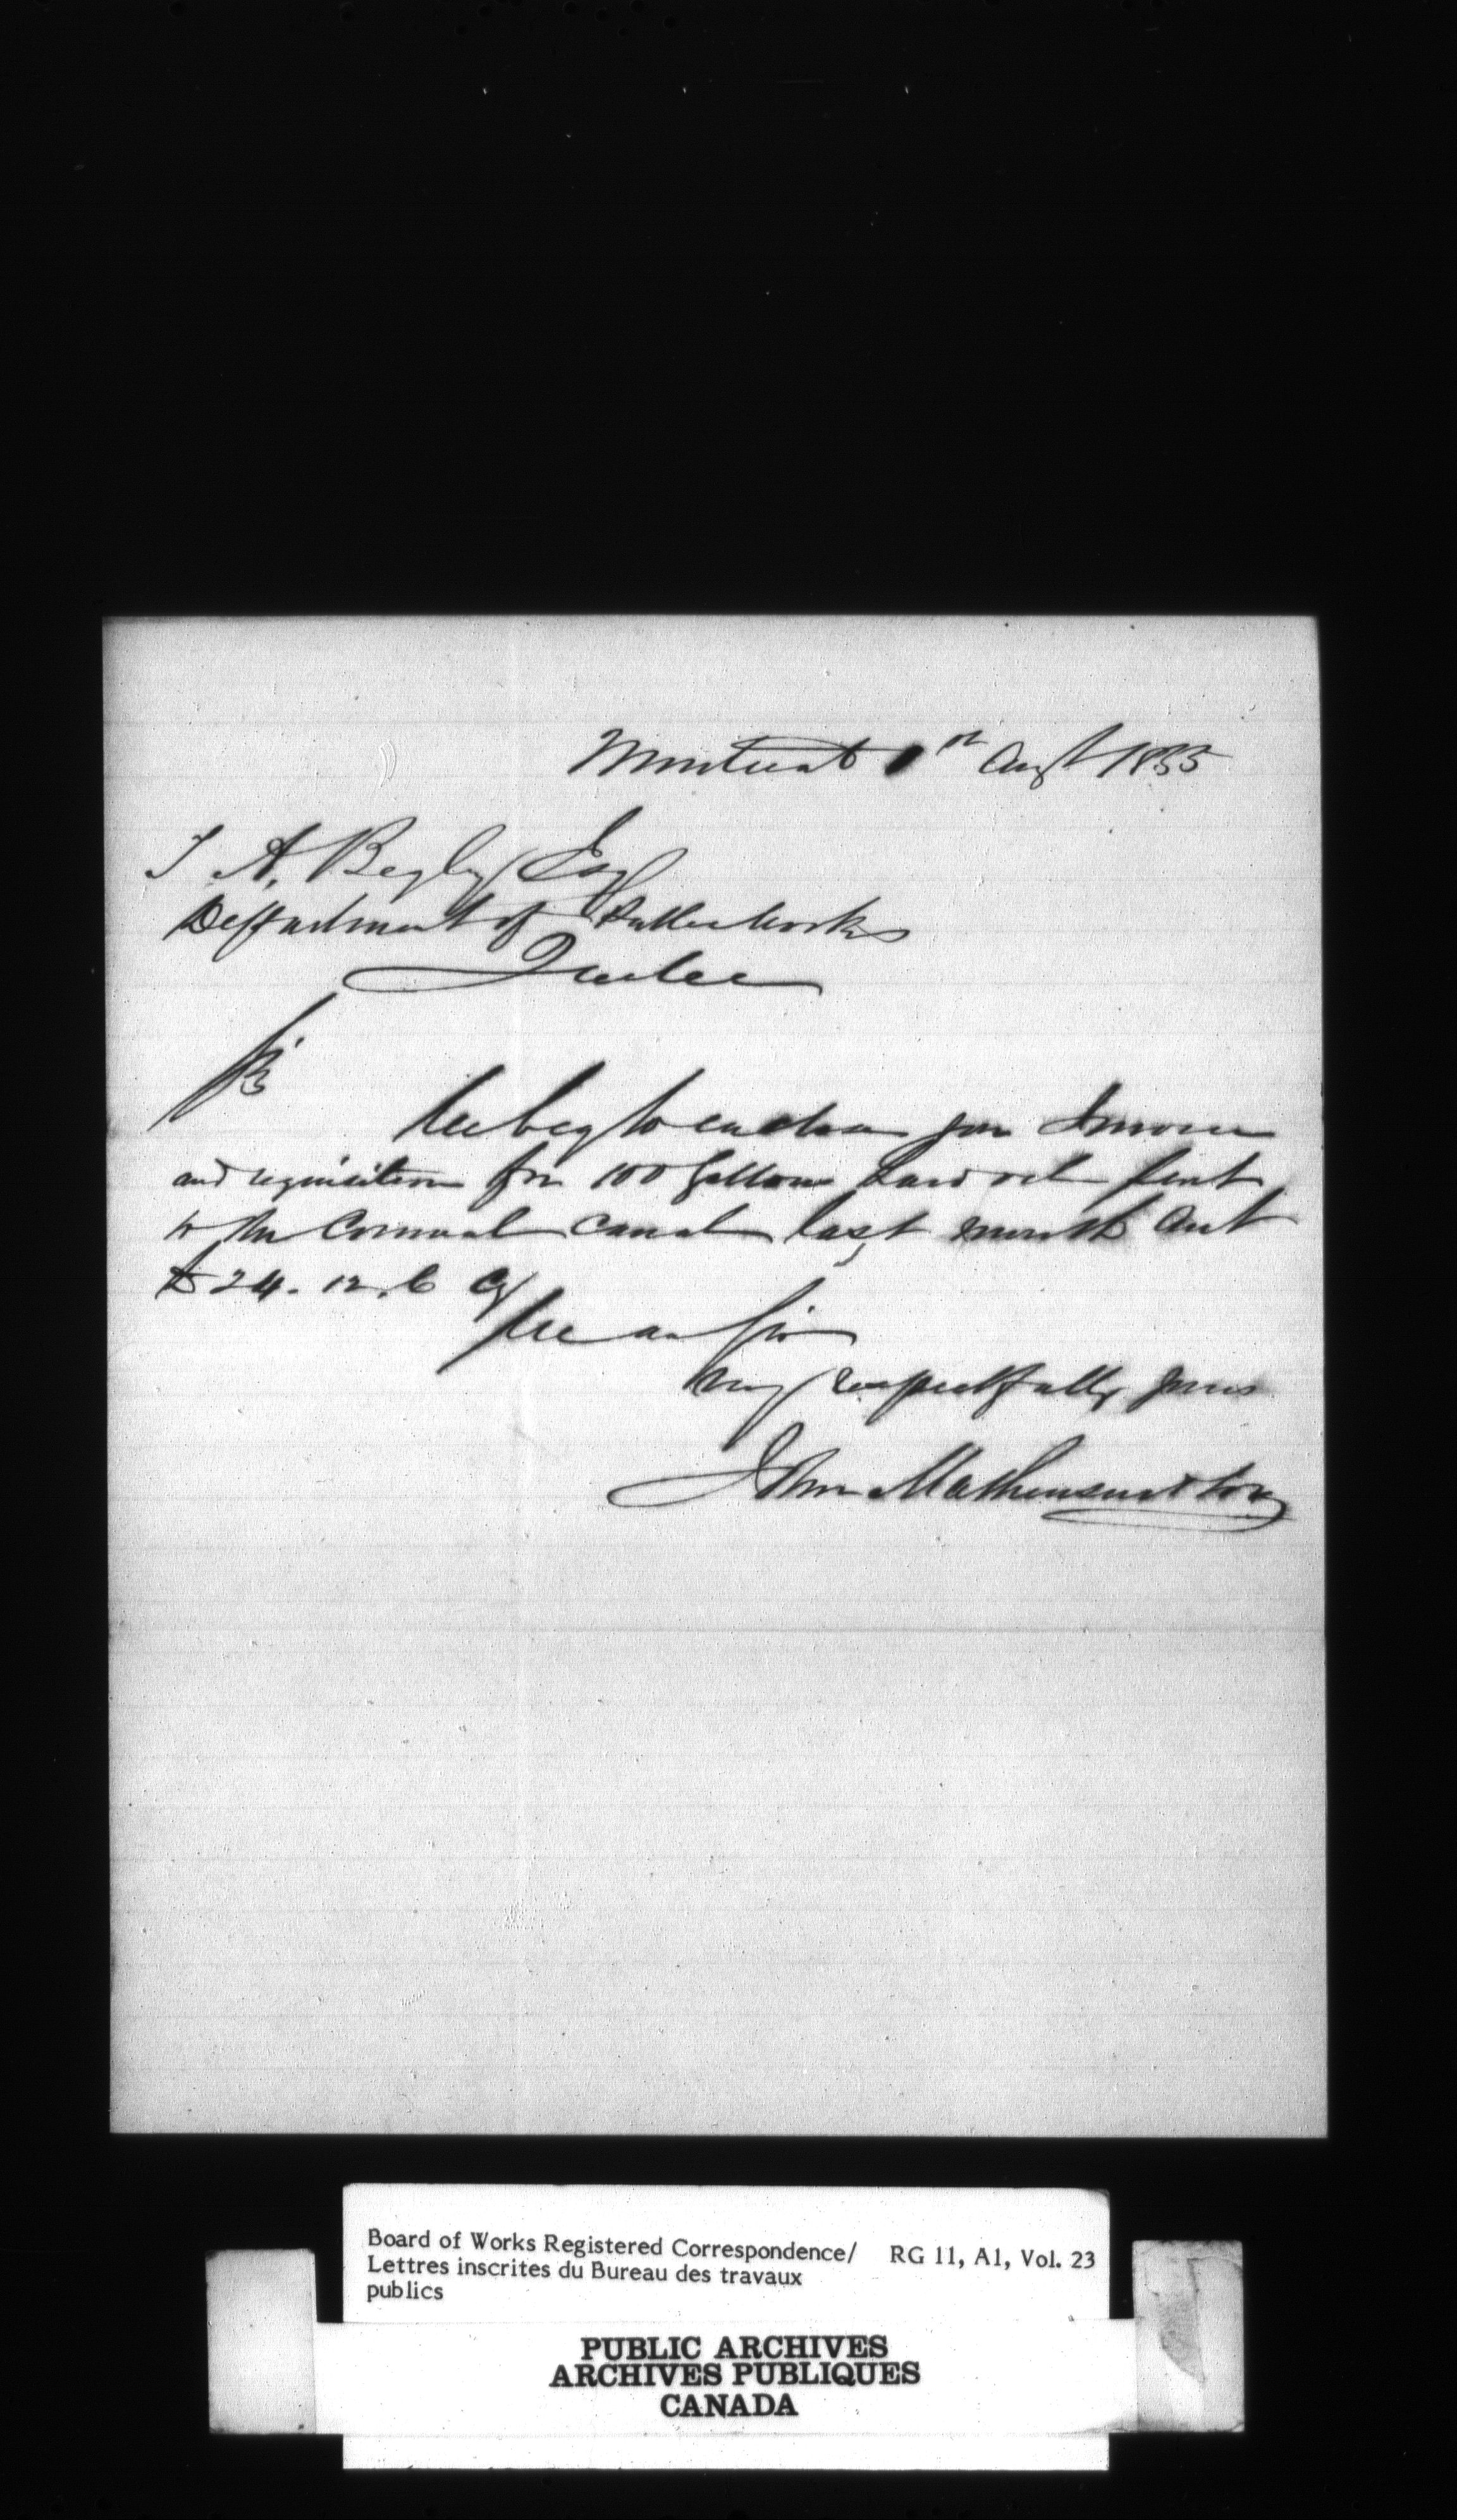 Montreal 1st Augt 1855
T. A. Begly Esqr
Department of Public Works
Quebec
Sir
We beg to enclose you Invoice
and requisition for 100 Gallons Lard oil sent
to the Cornwall Canal last month Amt
£24. 12. 6 Cy
We are Sir
very respectfully yours
John Mathewson & Son
Board of Works Registered Correspondence/ RG 11, A1, Vol. 23
Lettres inscrites du Bureau des travaux
publics
PUBLIC ARCHIVES
ARCHIVES PUBLIQUES
CANADA